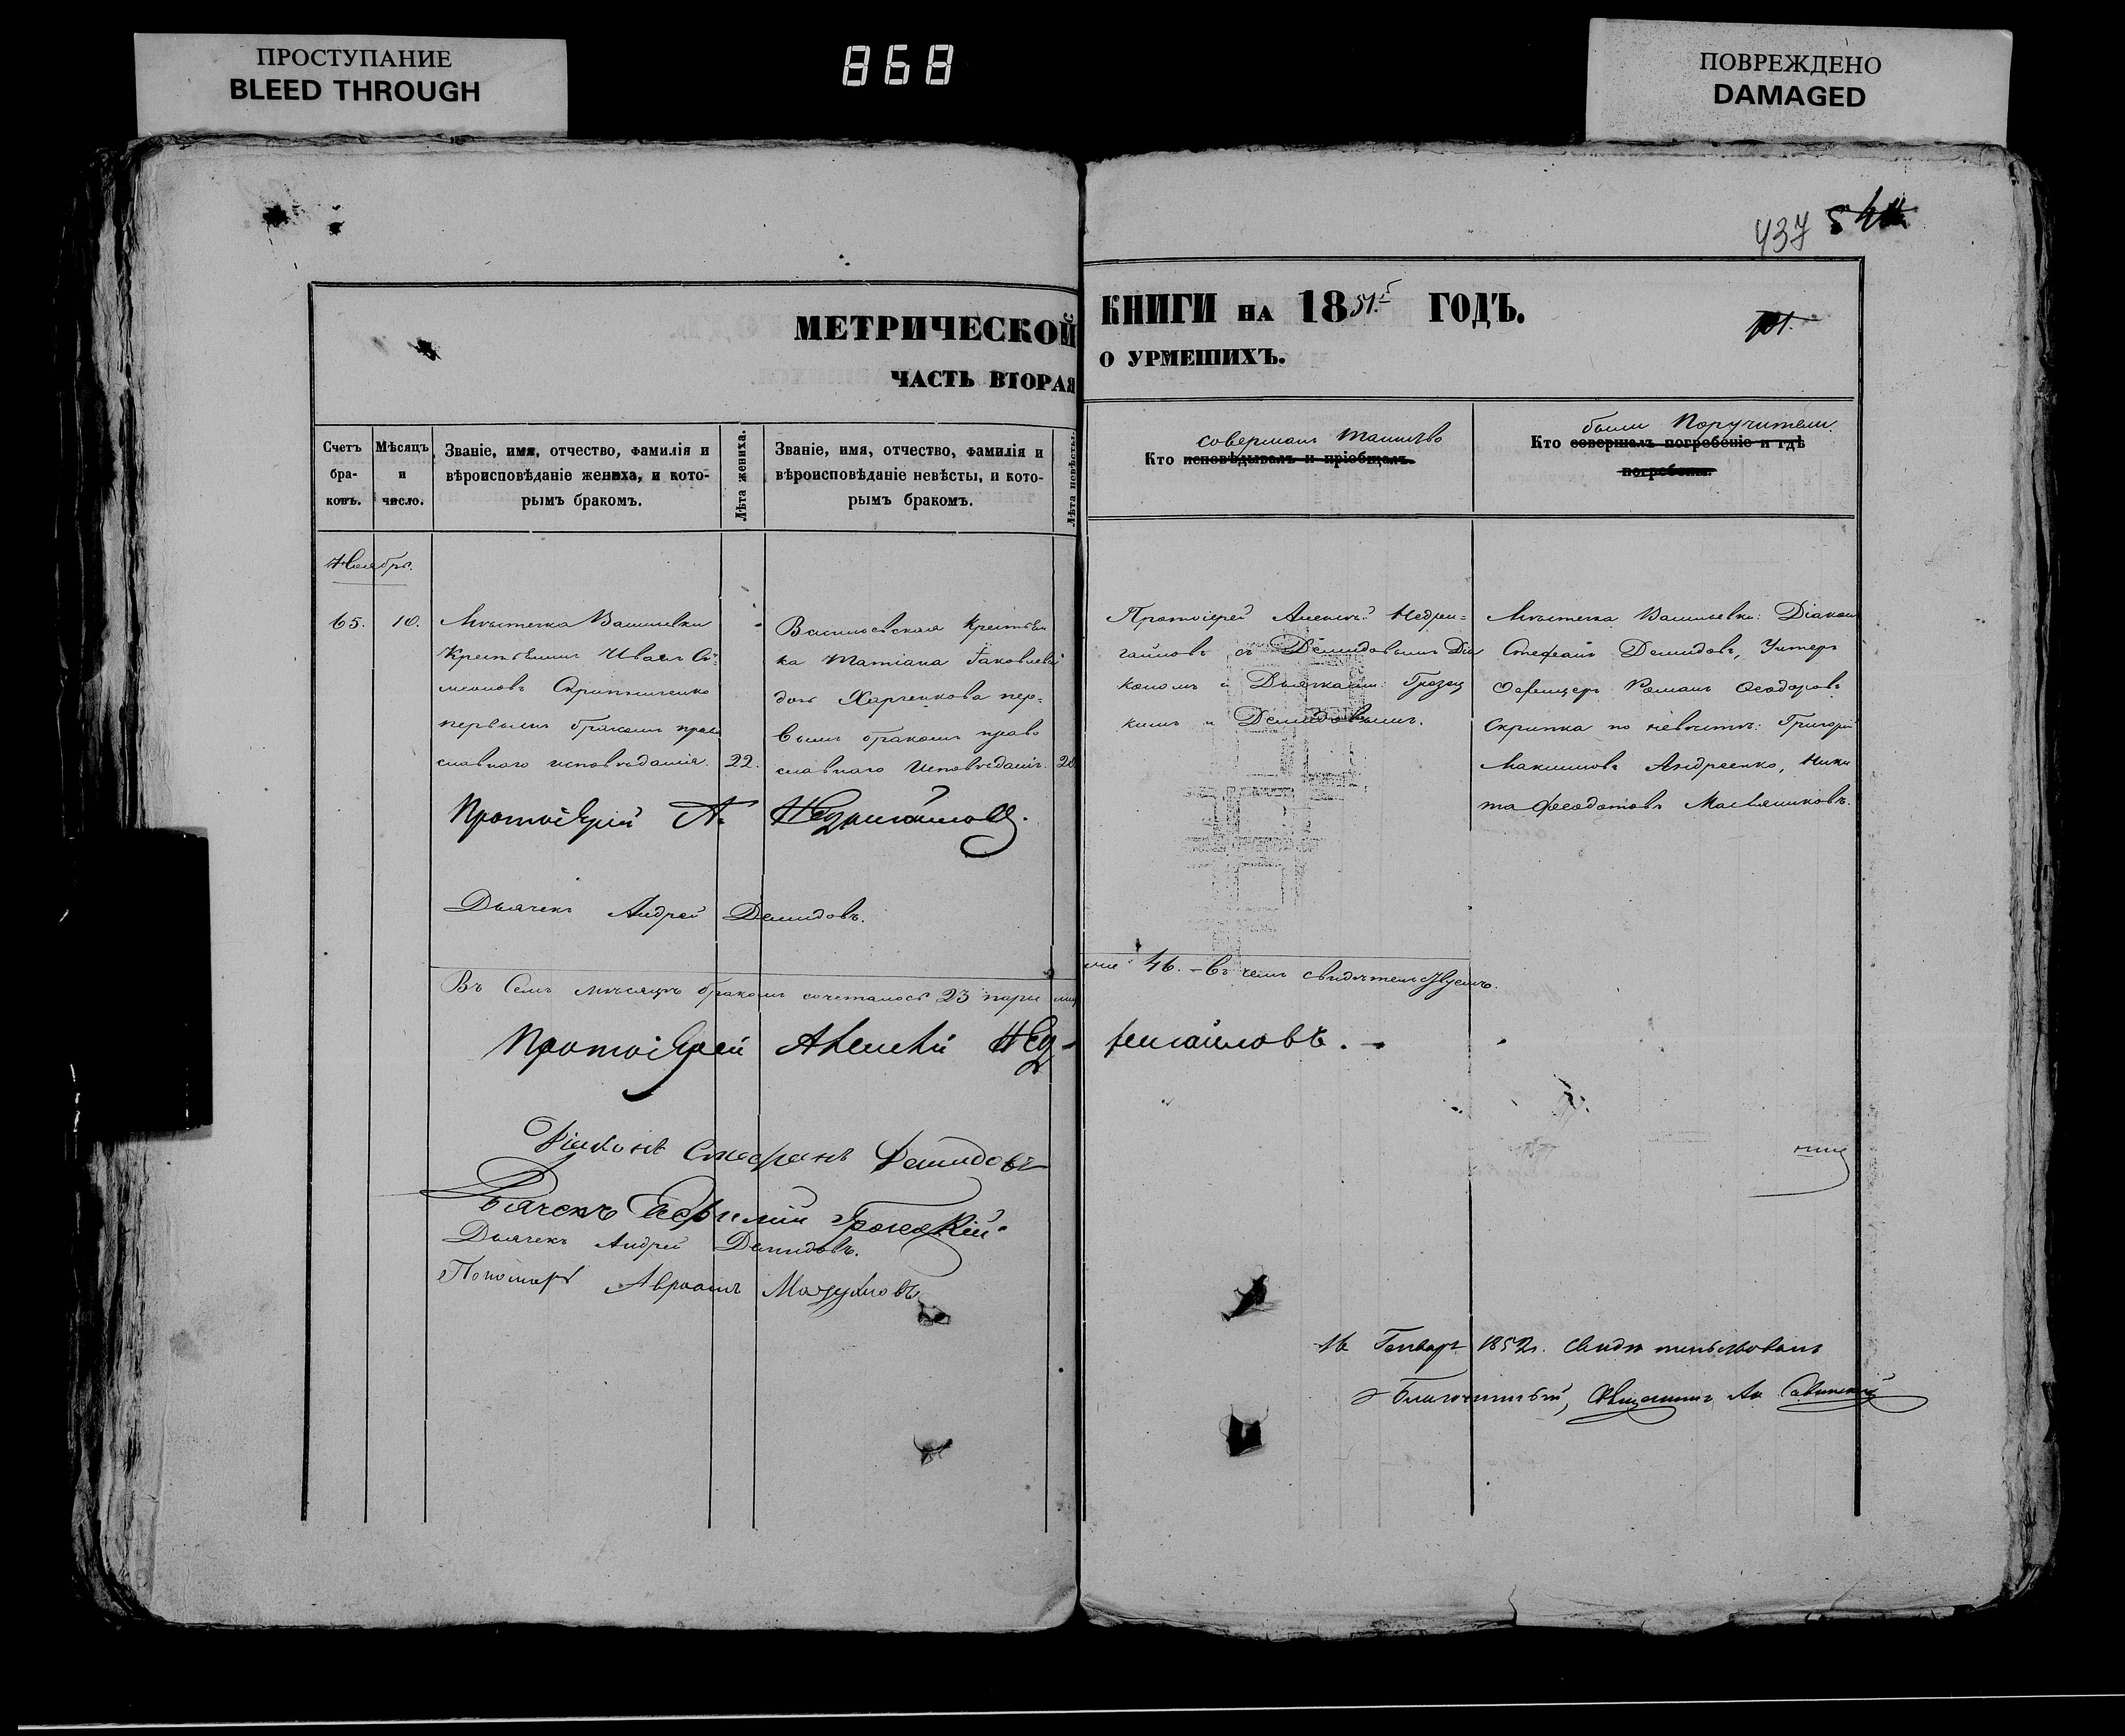 ПРОСТУПАНИЕ
BLEED THROUGH
868
ПОВРЕЖДЕНО
DAMAGED
437
МЕТРИЧЕСКОЙ КНИГИ НА 1851 ГОДЪ.
101.
ЧАСТЬ ВТОРАЯ
О УРМЕШИХЪ.
Счетъ бра-ковъ.
Мѣсяцъ и число.
Званіе, имя, отчество, фамилія и
вѣроисповѣданіе жениха, и кото-
рымъ бракомъ.
Лѣта жениха.
Званіе, имя, отчество, фамилія и
вѣроисповѣданіе невѣсты, и кото-
рымъ бракомъ.
Лѣта невѣсты.
совершал таинство
Кто исповѣдывалъ и пріобщалъ.
были Поручители.
Кто совершалъ погребеніе и гдѣ
погребены.
Ноябрь.
65.
10.
Мѣстечка Васильевки
Крестьянинъ Иванъ Си-
меоновъ Скрипниченко
первымъ бракомъ право
славнаго исповѣданія.
22.
Васильевская Крестьян
ка Татіана Іаковлева
дочь Харченкова пер-
вымъ бракомъ право
славнаго Исповѣданія.
20
Протоіерей Алексѣй Недри=
гайловъ съ Демидовымъ Діа
кономъ и Дьячками: Грозец
кимъ и Демидовымъ.
Мѣстечка Васильевки: Діаконъ
Стефанъ Демидовъ, Унтеръ
Офицеръ Романъ Феодоровъ
Скрипка по невѣстѣ: Григорій
Максимовъ Андреенко, Ники
та Феодотовъ Масляниковъ.
Протоіерей А. Недригайловъ.
Дьячекъ Андрей Демидовъ.
Въ Семъ мѣсяцѣ бракомъ сочеталось 23 пары
46. – въ чемъ свидѣтельствуемъ.
Протоіерей Алексѣй Нед-ригайловъ. –
Діаконъ Стефанъ Демидовъ
Дьячекъ Грозецкій
Дьячекъ Андрей Демидовъ.
Пономарь Авраамъ
16 Генваря 1852 г. свидѣтельствовалъ
Благочинный, Священникъ Савинскій